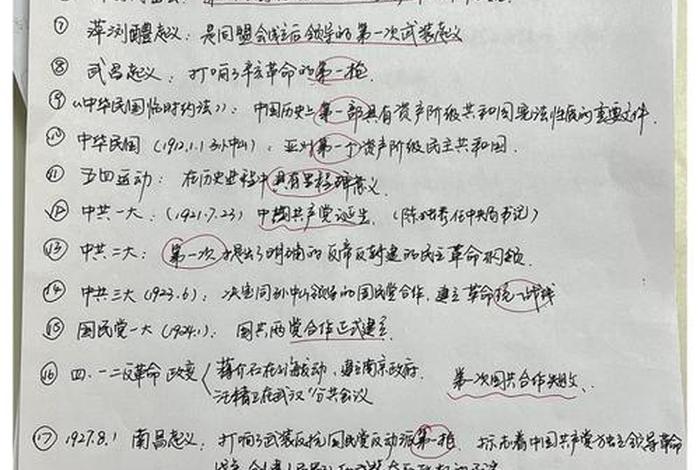 ⑦ 萍浏醴起义：是同盟会成立后领导的第一次武装起义
⑧ 武昌起义：打响了辛亥革命的第一枪.
⑨《中华民国临时约法》：中国历史上第一部具有资产阶级共和国宪法性质的重要文件.
⑩ 中华民国（1912.1.1 孙中山）：亚洲第一个资产阶级民主共和国.
⑪ 五四运动：在历史进程中具有里程碑意义.
⑫ 中共一大：（1921.7.23）中国共产党诞生.（陈独秀任中央局书记）
⑬ 中共二大：第一次提出了明确的反帝反封建的民主革命纲领.
⑭ 中共三大（1923.6）：决定同孙中山领导的国民党合作，建立革命统一战线
⑮ 国民党一大（1924.1）：国共两党合作正式建立.
⑯ 四·一二反革命政变 蒋介石在上海发动，建立南京政府. 第一次国共合作失败.
汪精卫在武汉“分共会议
⑰ 1927.8.1 南昌起义：打响了武装反抗国民党反动派第一枪. 标志着中国共产党独立领导革命